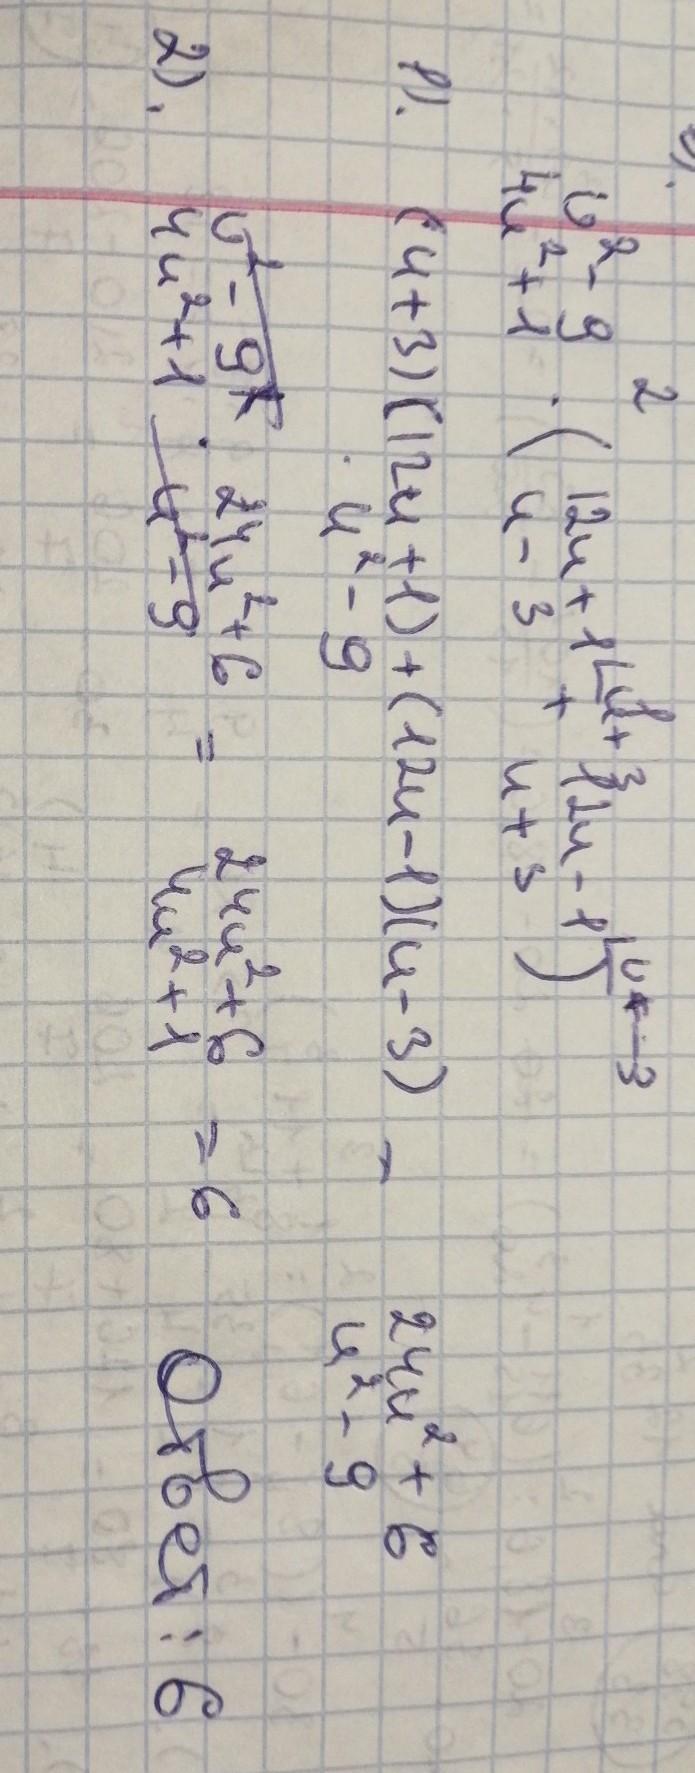 u² - 9 / 4u² + 1 · ( 12u + 1 / u - 3 + 12u - 1 / u + 3 )
1). (u + 3)(12u + 1) + (12u - 1)(u - 3) / u² - 9 = 24u² + 6 / u² - 9
2). u² - 9 / 4u² + 1 · 24u² + 6 / u² - 9 = 24u² + 6 / 4u² + 1 = 6 Ответ: 6